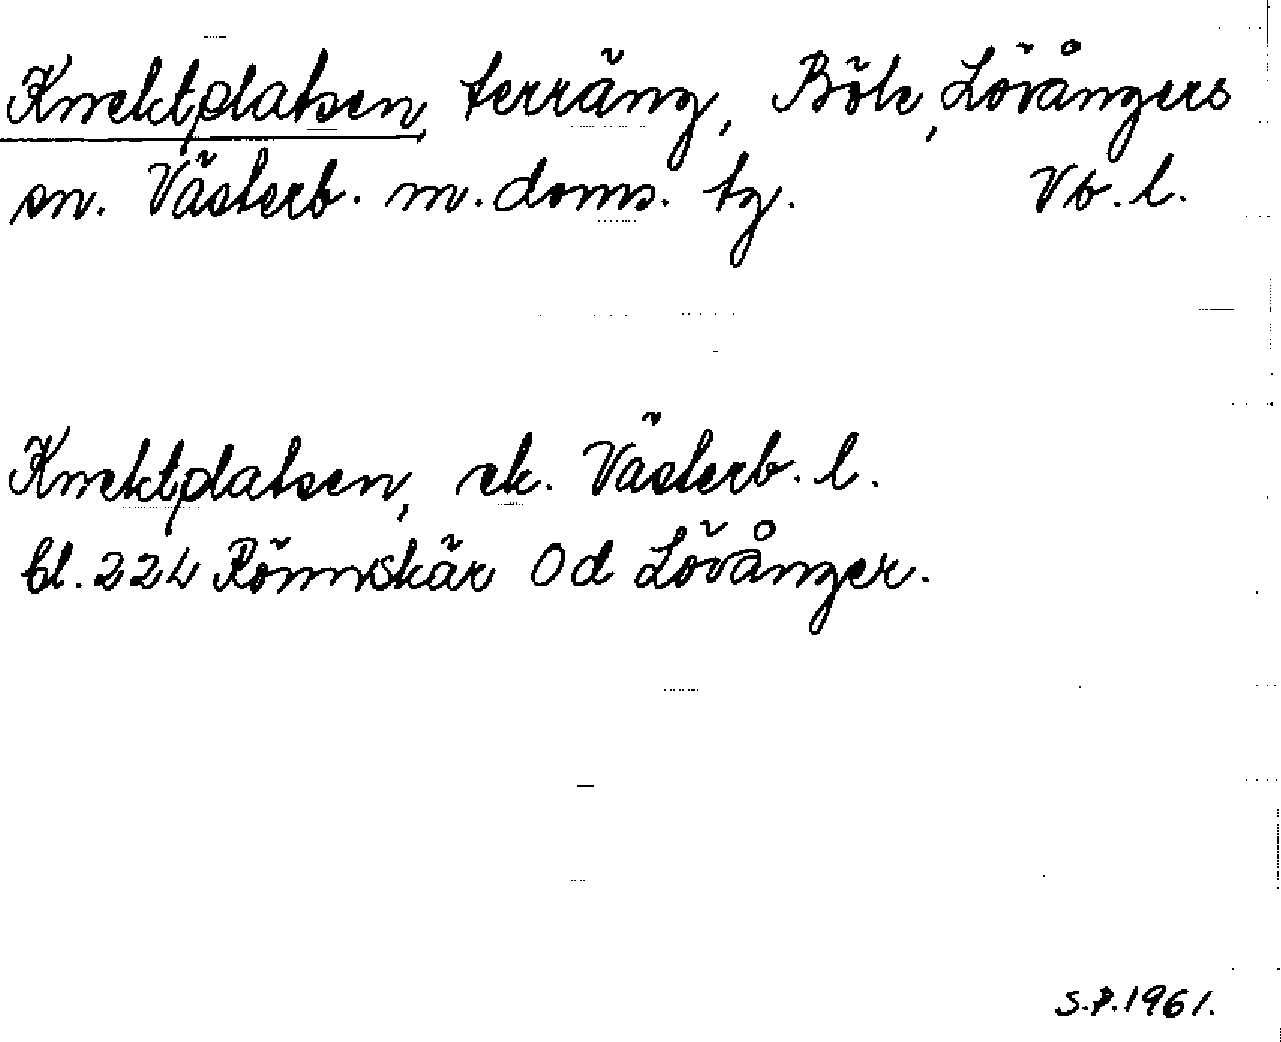 Knektplatsen, terräng, Böle, Lövångers
sn. Västerb. m. doms. tg. Vb. l.
Knektplatsen, ek. Västerb. l.
bl. 224 Rönnskär Od Lövånger.
S.P. 1961.